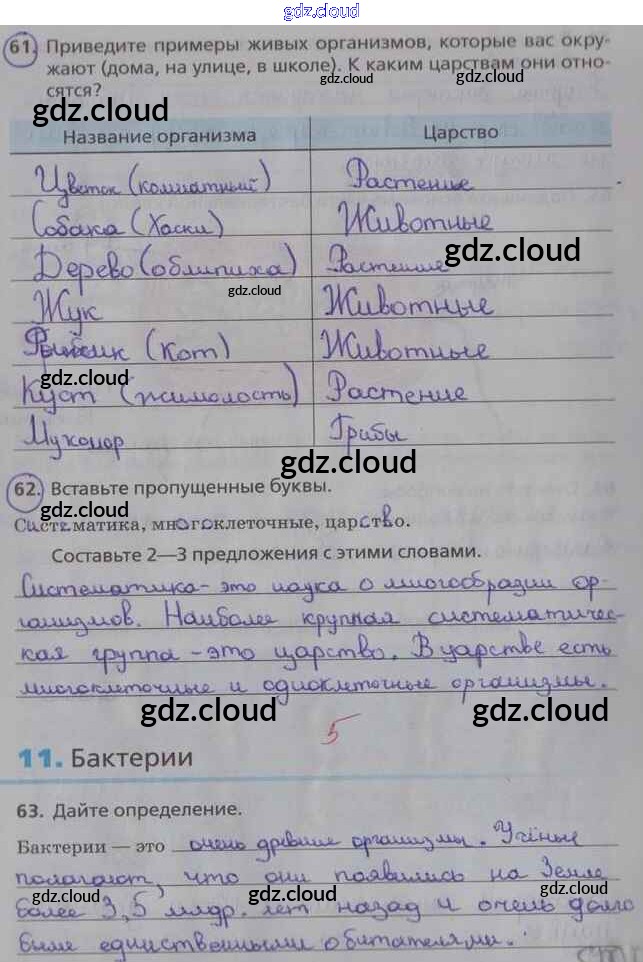 gdz.cloud
61. Приведите примеры живых организмов, которые вас окру-
жают (дома, на улице, в школе). К каким царствам они отно-
gdz.cloud gdz.cloud
сятся?
gdz.cloud
Название организма Царство
Цветок (комнатный) Растение
Собака (Хаски) Животные
gdz.cloud gdz.cloud
Дерево (облипиха) Растение
gdz.cloud
Жук Животные
(Кот) Животные
gdz.cloud gdz.cloud
Куст (жимолость) Растение
Мухомор Грибы
gdz.cloud
62. Вставьте пропущенные буквы.
Систематика, многоклеточные, царство.
gdz.cloud gdz.cloud
Составьте 2—3 предложения с этими словами.
Систематика - это наука о многообразии ор-
ганизмов. Наиболее крупная систематичес-
кая группа - это царство. В царстве есть
многоклеточные и одноклеточные организмы.
gdz.cloud gdz.cloud
5
11. Бактерии
63. Дайте определение.
Бактерии — это очень древние организмы. Учёные
полагают, что они появились на Земле
gdz.cloud gdz.cloud
более 3,5 млдр. лет назад и очень долго
были единственными обитателями.